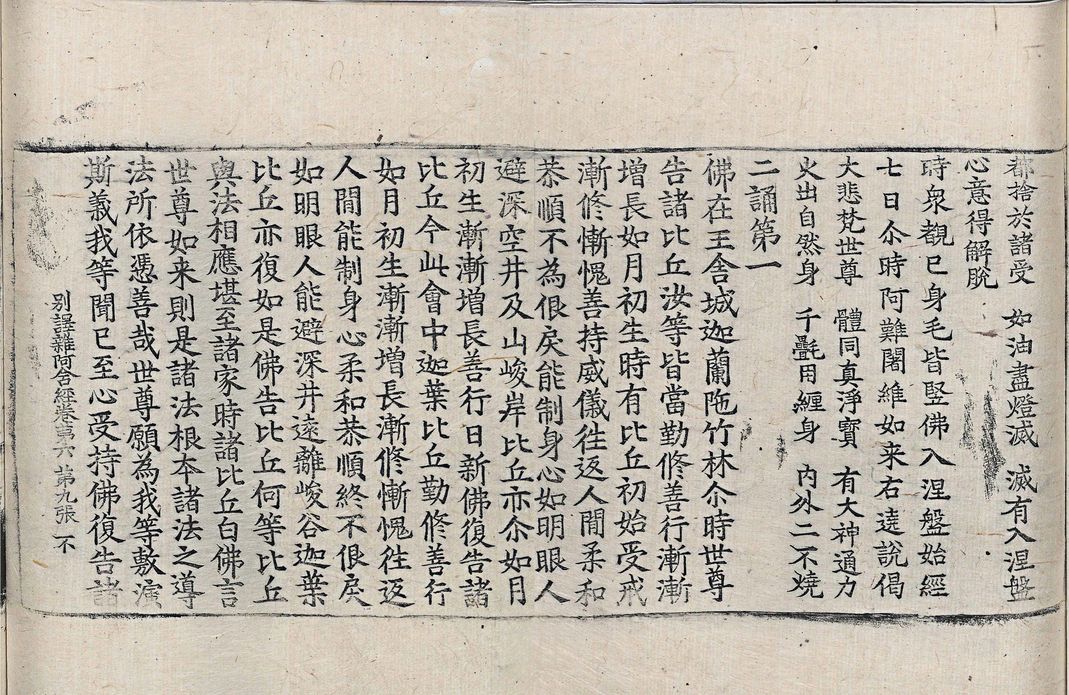 都捨於諸受　如油盡燈滅　滅有入涅盤
心意得解脫
時衆覩已身毛皆竪佛入涅盤始經
七日尒時阿難闍維如来右遶說偈
大悲梵世尊　體同真淨寶　有大神通力
火出自然身　千㲲用纏身　內外二不燒
二誦第一
佛在王舍城迦蘭陁竹林尒時世尊
告諸比丘汝等皆當勤修善行漸漸
增長如月初生時有比丘初始受戒
漸修慚愧善持威儀往返人間柔和
恭順不為佷戾能制身心如明眼人
避深空井及山峻岸比丘亦尒如月
初生漸漸增長善行日新佛復告諸
比丘今此會中迦葉比丘勤修善行
如月初生漸漸增長漸修慚愧往返
人間能制身心柔和恭順終不佷戾
如明眼人能避深井遠離峻谷迦葉
比丘亦復如是佛告比丘何等比丘
與法相應堪至諸家時諸比丘白佛言
世尊如来則是諸法根本諸法之導
法所依憑善哉世尊願為我等敷演
斯義我等聞已至心受持佛復告諸
别譯雜阿含經卷第六　第九張　不